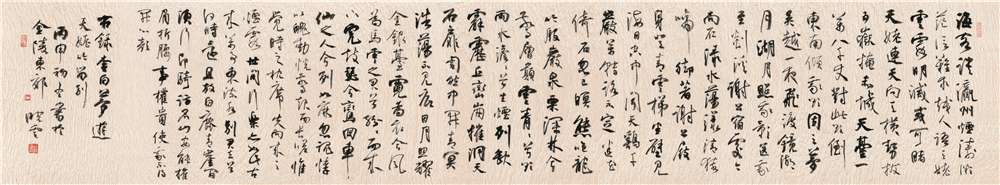 海客谈瀛州烟涛微
茫信难求越人语天姥
云霓明灭或可睹
天姥连天向天横势拔
五岳掩赤城天台一
万八千丈对此欲倒
东南倾我欲因之梦
吴越一夜飞渡镜湖
月湖月照我影送我
至剡溪谢公宿处今
尚在渌水荡漾清猿
啼脚著谢公屐
身登青云梯半壁见
海日空中闻天鸡千
岩万转路不定迷花
倚石忽已暝熊咆龙
吟殷岩泉栗深林兮
惊层巅云青青兮欲
雨水澹澹兮生烟列缺
霹雳丘峦崩摧洞天
石扉訇然中开青冥
浩荡不见底日月照耀
金银台霓为衣兮风
为马云之君兮纷纷而来
下虎鼓瑟兮鸾回车
仙之人兮列如麻忽魂悸
以魄动恍惊起而长嗟惟
觉时之枕席失向来之
烟霞世间行乐亦如此古
来万事东流水别君去兮
何时还且放白鹿青崖间
须行即骑访名山安能摧
眉折腰事权贵使我不得
开心颜
右录李白梦游
天姥吟留别
丙申初冬书於
金陵东郊